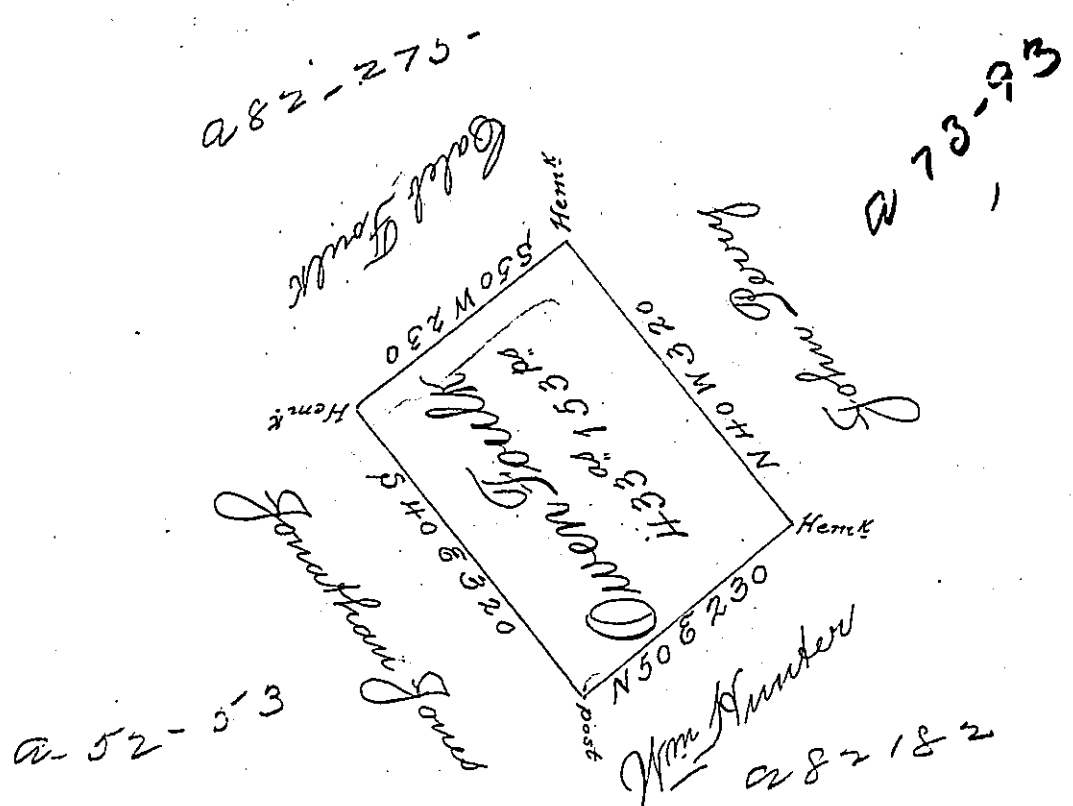 a 82-275-
a 73-93
Caleb Foulk
Hemk
John Perry
S50W230
N40W320
Hemk
Owen Foulk
433 as 153 ps
S40E320
Hemk
Jonathan Jones
N50E230
post
Wm Hunter
a-52-53
a 82 182